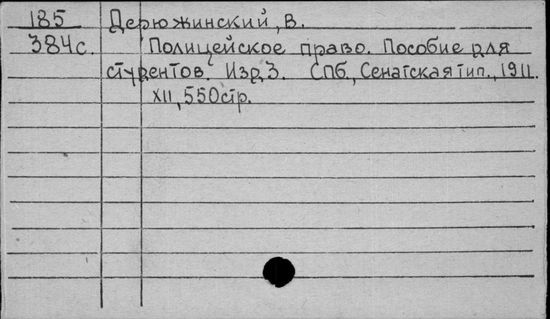 185 Дерюжинский, В.
384с. Полицейское право. Пособие для
студентов. Изд. 3. СПб., Сенатская тип., 1911.
XII, 550 стр.